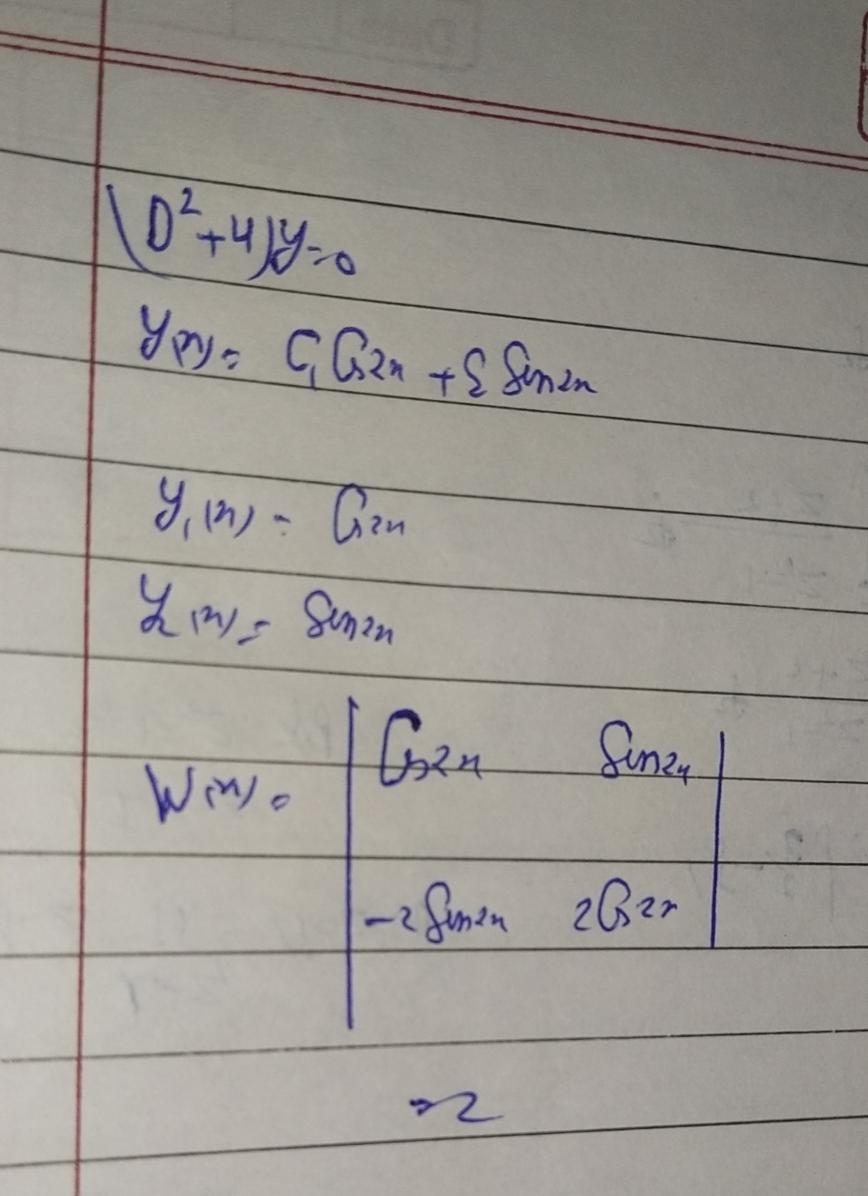 (D²+4)y=0
y(x) = C₁ Cos2x + C₂ Sin2x
y₁(x) = Cos2x
y₂(x) = Sin2x
W(x) = | Cos2x Sin2x |
| -2Sin2x 2Cos2x |
=2